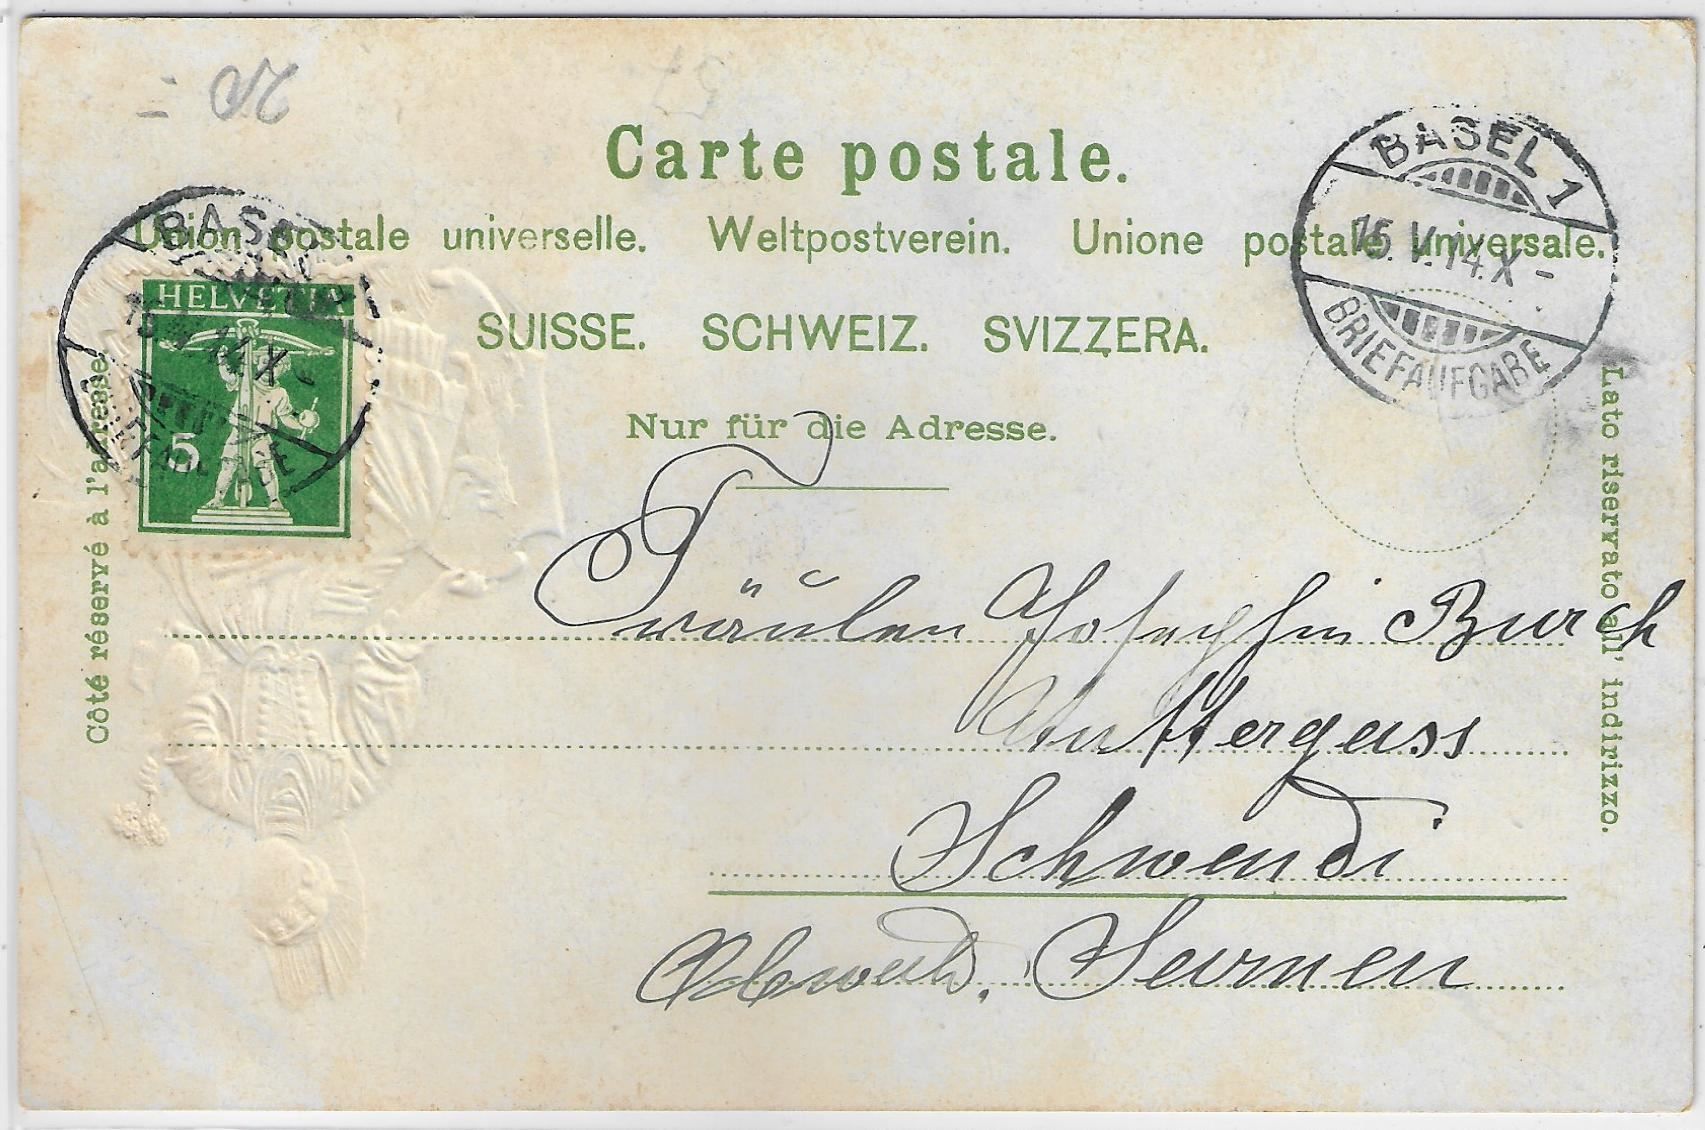 Carte postale.
Union postale universelle. Weltpostverein. Unione postale universale.
SUISSE. SCHWEIZ. SVIZZERA.
Nur für die Adresse.
Côté réservé à l'adresse.
Lato riservato all' indirizzo.
HELVETIA
5
BASEL 1
15.V.14.X-
BRIEFAUFGABE
BASEL
Fräulen Josephin Burch
Schwendi
Obwald. Sarnen